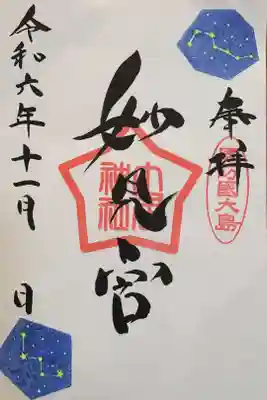 奉拝
國大島
妙見宮
神社
令和六年十一月 日